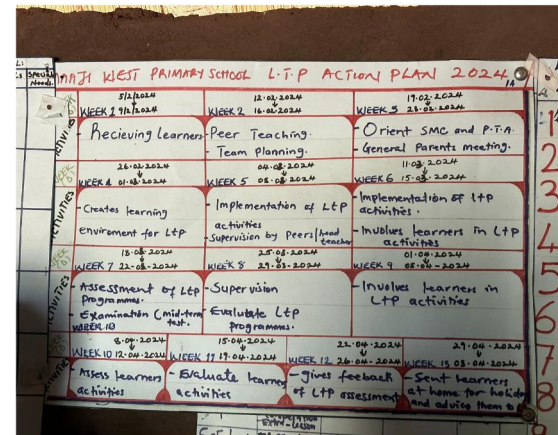 NJI WEST PRIMARY SCHOOL L.T.P ACTION PLAN 2024
5/2/2024 12.02.2024 19.02.2024
WEEK 1 9/2/2024 WEEK 2 16.02.2024 WEEK 3 23.02.2024
Recieving Learners
- Peer Teaching.
- Team Planning.
- Orient SMC and P.T.A.
- General Parents meeting.
26.02.2024 04.03.2024 11.03.2024
WEEK 4 01.03.2024 WEEK 5 08.03.2024 WEEK 6 15.03.2024
ACTIVITIES
- Creates learning
enviroment for LtP
- Implementation of LtP
activities
- Supervision by Peers/head
teacher
- Implementation of LtP
activities.
- Involves learners in LtP
activities
18.03.2024 25.03.2024 01.04.2024
WEEK 7 22.03.2024 WEEK 8 29.03.2024 WEEK 9 05.04.2024
- Assessment of LtP
Programmes.
- Examination (mid-term
test.
- Supervision
- Evaluate LtP
programmes.
- Involves learners in
LtP activities
WEEK 10
8.04.2024 15.04.2024 22.04.2024 29.04.2024
WEEK 10 12.04.2024 WEEK 11 19.04.2024 WEEK 12 26.04.2024 WEEK 13 03.04.2024
- Assess learners
activities
- Evaluate learners
activities
- gives feeback
of LtP assessment
- Sent learners
at home for holiday
and advice them to
Special
Needs.
1
2
3
4
5
6
7
8